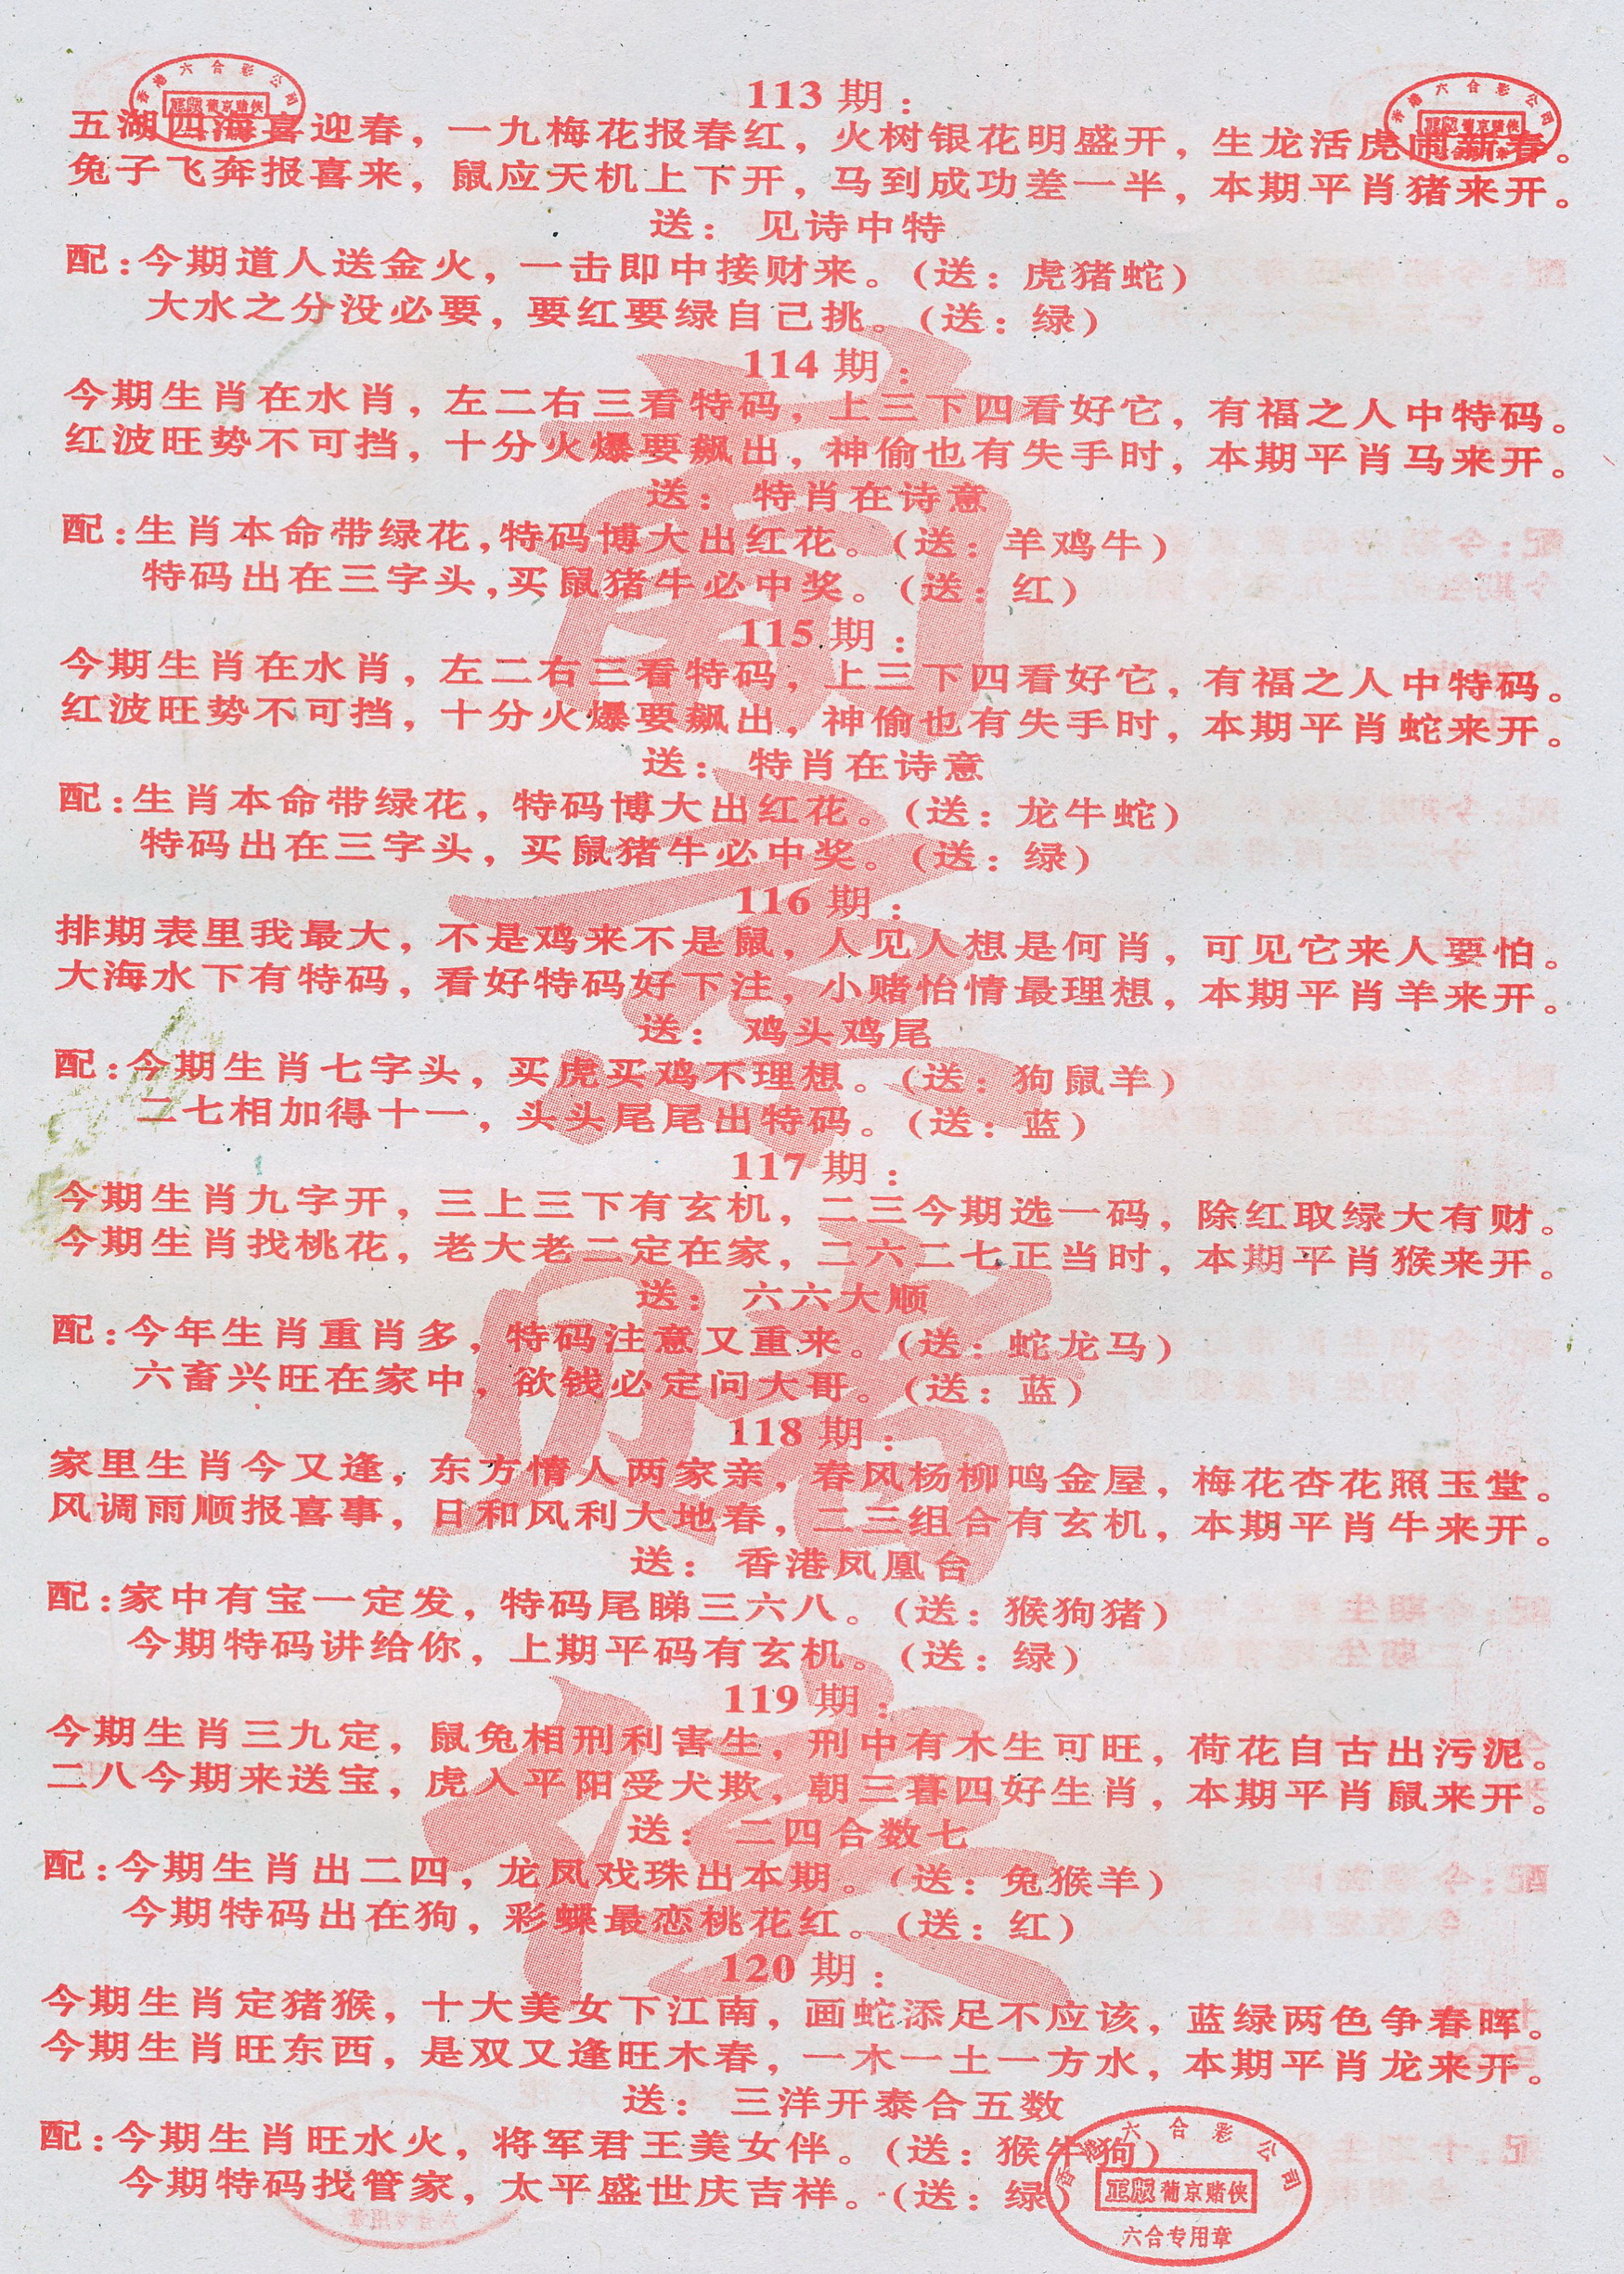 香港六合彩公司
正版 葡京赌侠
香港六合彩公司
正版 葡京赌侠
113期：
五湖四海喜迎春，一九梅花报春红，火树银花明盛开，生龙活虎闹新春。
兔子飞奔报喜来，鼠应天机上下开，马到成功差一半，本期平肖猪来开。
送：见诗中特
配：今期道人送金火，一击即中接财来。（送：虎猪蛇）
大水之分没必要，要红要绿自己挑。（送：绿）
114期：
今期生肖在水肖，左二右三看特码，上三下四看好它，有福之人中特码。
红波旺势不可挡，十分火爆要飙出，神偷也有失手时，本期平肖马来开。
送：特肖在诗意
配：生肖本命带绿花，特码博大出红花。（送：羊鸡牛）
特码出在三字头，买鼠猪牛必中奖。（送：红）
115期：
今期生肖在水肖，左二右三看特码，上三下四看好它，有福之人中特码。
红波旺势不可挡，十分火爆要飙出，神偷也有失手时，本期平肖蛇来开。
送：特肖在诗意
配：生肖本命带绿花，特码博大出红花。（送：龙牛蛇）
特码出在三字头，买鼠猪牛必中奖。（送：绿）
116期：
排期表里我最大，不是鸡来不是鼠，人见人想是何肖，可见它来人要怕。
大海水下有特码，看好特码好下注，小赌怡情最理想，本期平肖羊来开。
送：鸡头鸡尾
配：今期生肖七字头，买虎买鸡不理想。（送：狗鼠羊）
二七相加得十一，头头尾尾出特码。（送：蓝）
117期：
今期生肖九字开，三上三下有玄机，二三今期选一码，除红取绿大有财。
今期生肖找桃花，老大老二定在家，二六二七正当时，本期平肖猴来开。
送：六六大顺
配：今年生肖重肖多，特码注意又重来。（送：蛇龙马）
六畜兴旺在家中，欲钱必定问大哥。（送：蓝）
118期：
家里生肖今又逢，东方情人两家亲，春风杨柳鸣金屋，梅花杏花照玉堂。
风调雨顺报喜事，日和风利大地春，二三组合有玄机，本期平肖牛来开。
送：香港凤凰台
配：家中有宝一定发，特码尾睇三六八。（送：猴狗猪）
今期特码讲给你，上期平码有玄机。（送：绿）
119期：
今期生肖三九定，鼠兔相刑利害生，刑中有木生可旺，荷花自古出污泥。
二八今期来送宝，虎入平阳受犬欺，朝三暮四好生肖，本期平肖鼠来开。
送：二四合数七
配：今期生肖出二四，龙凤戏珠出本期。（送：兔猴羊）
今期特码出在狗，彩蝶最恋桃花红。（送：红）
120期：
今期生肖定猪猴，十大美女下江南，画蛇添足不应该，蓝绿两色争春晖。
今期生肖旺东西，是双又逢旺木春，一木一土一方水，本期平肖龙来开。
送：三洋开泰合五数
配：今期生肖旺水火，将军君王美女伴。（送：猴牛狗）
今期特码找管家，太平盛世庆吉祥。（送：绿）
香港六合彩公司
正版 葡京赌侠
六合专用章
葡京赌侠